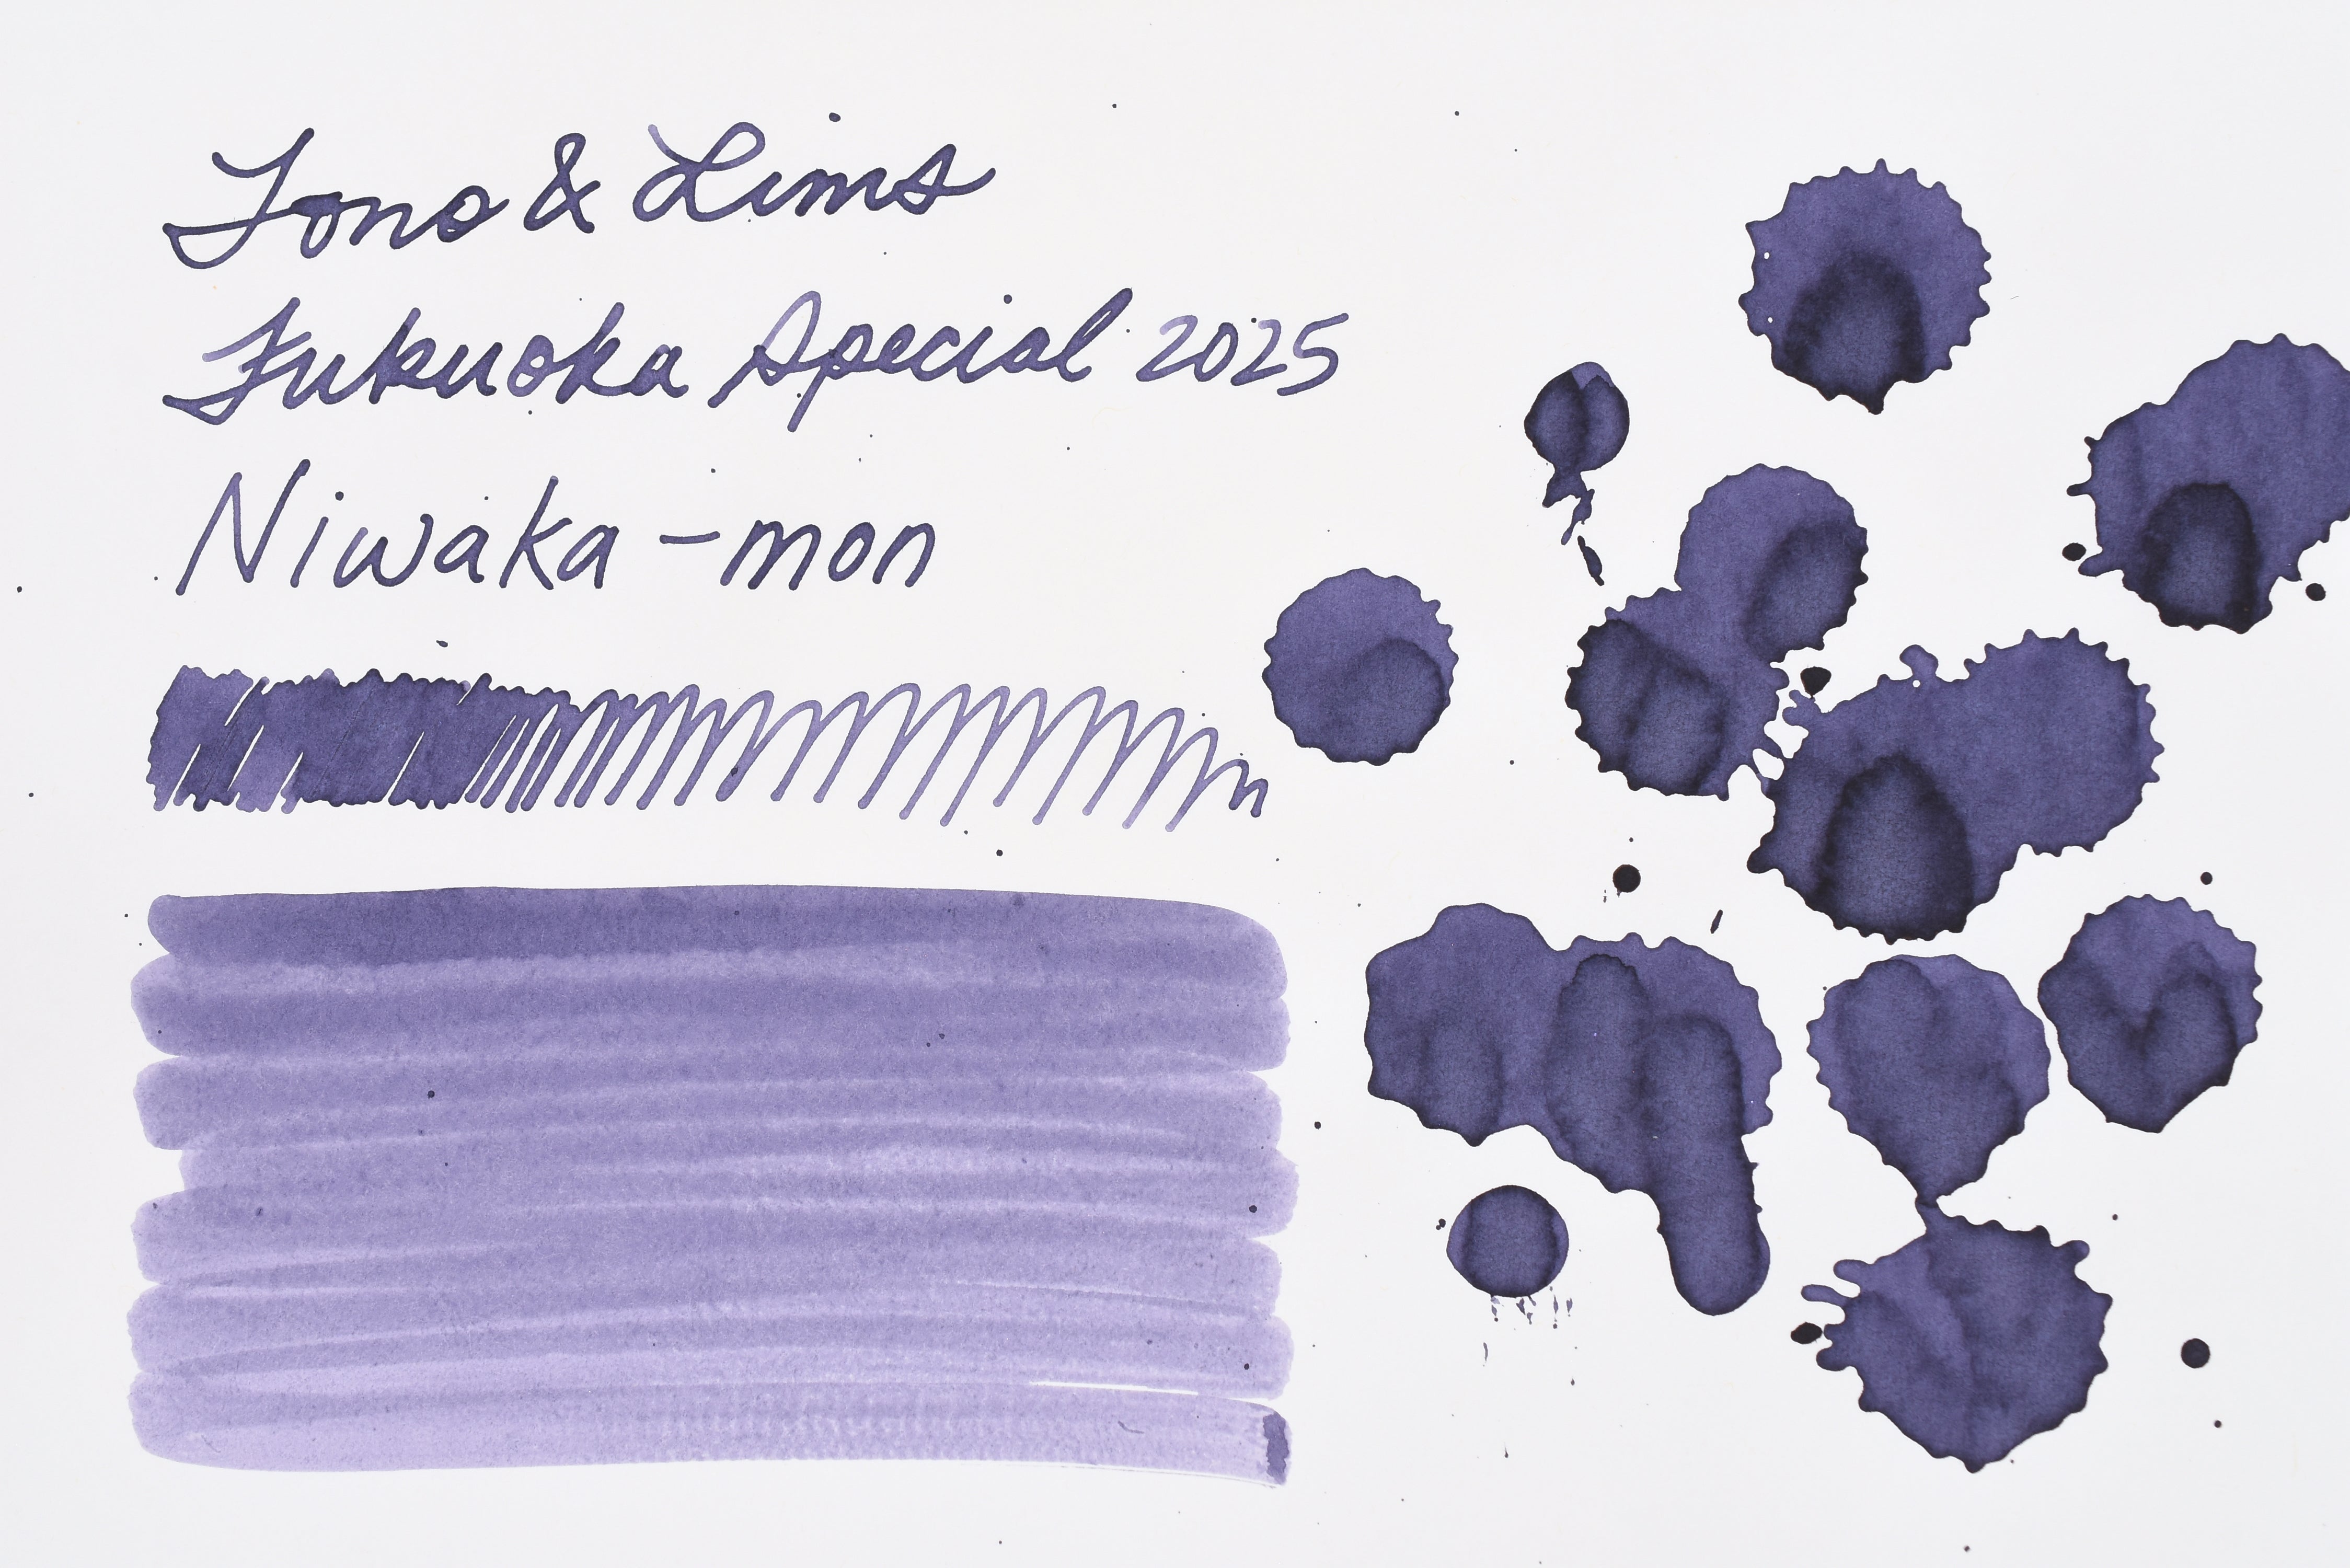 Tono & Lims
Fukuoka Special 2025
Niwaka-mon